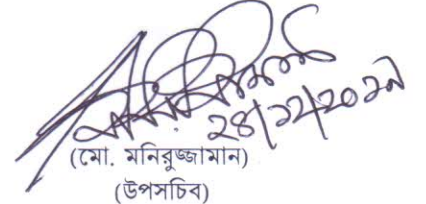 ২৪/১২/২০১৭
(মো. মনিরুজ্জামান)
(উপসচিব)